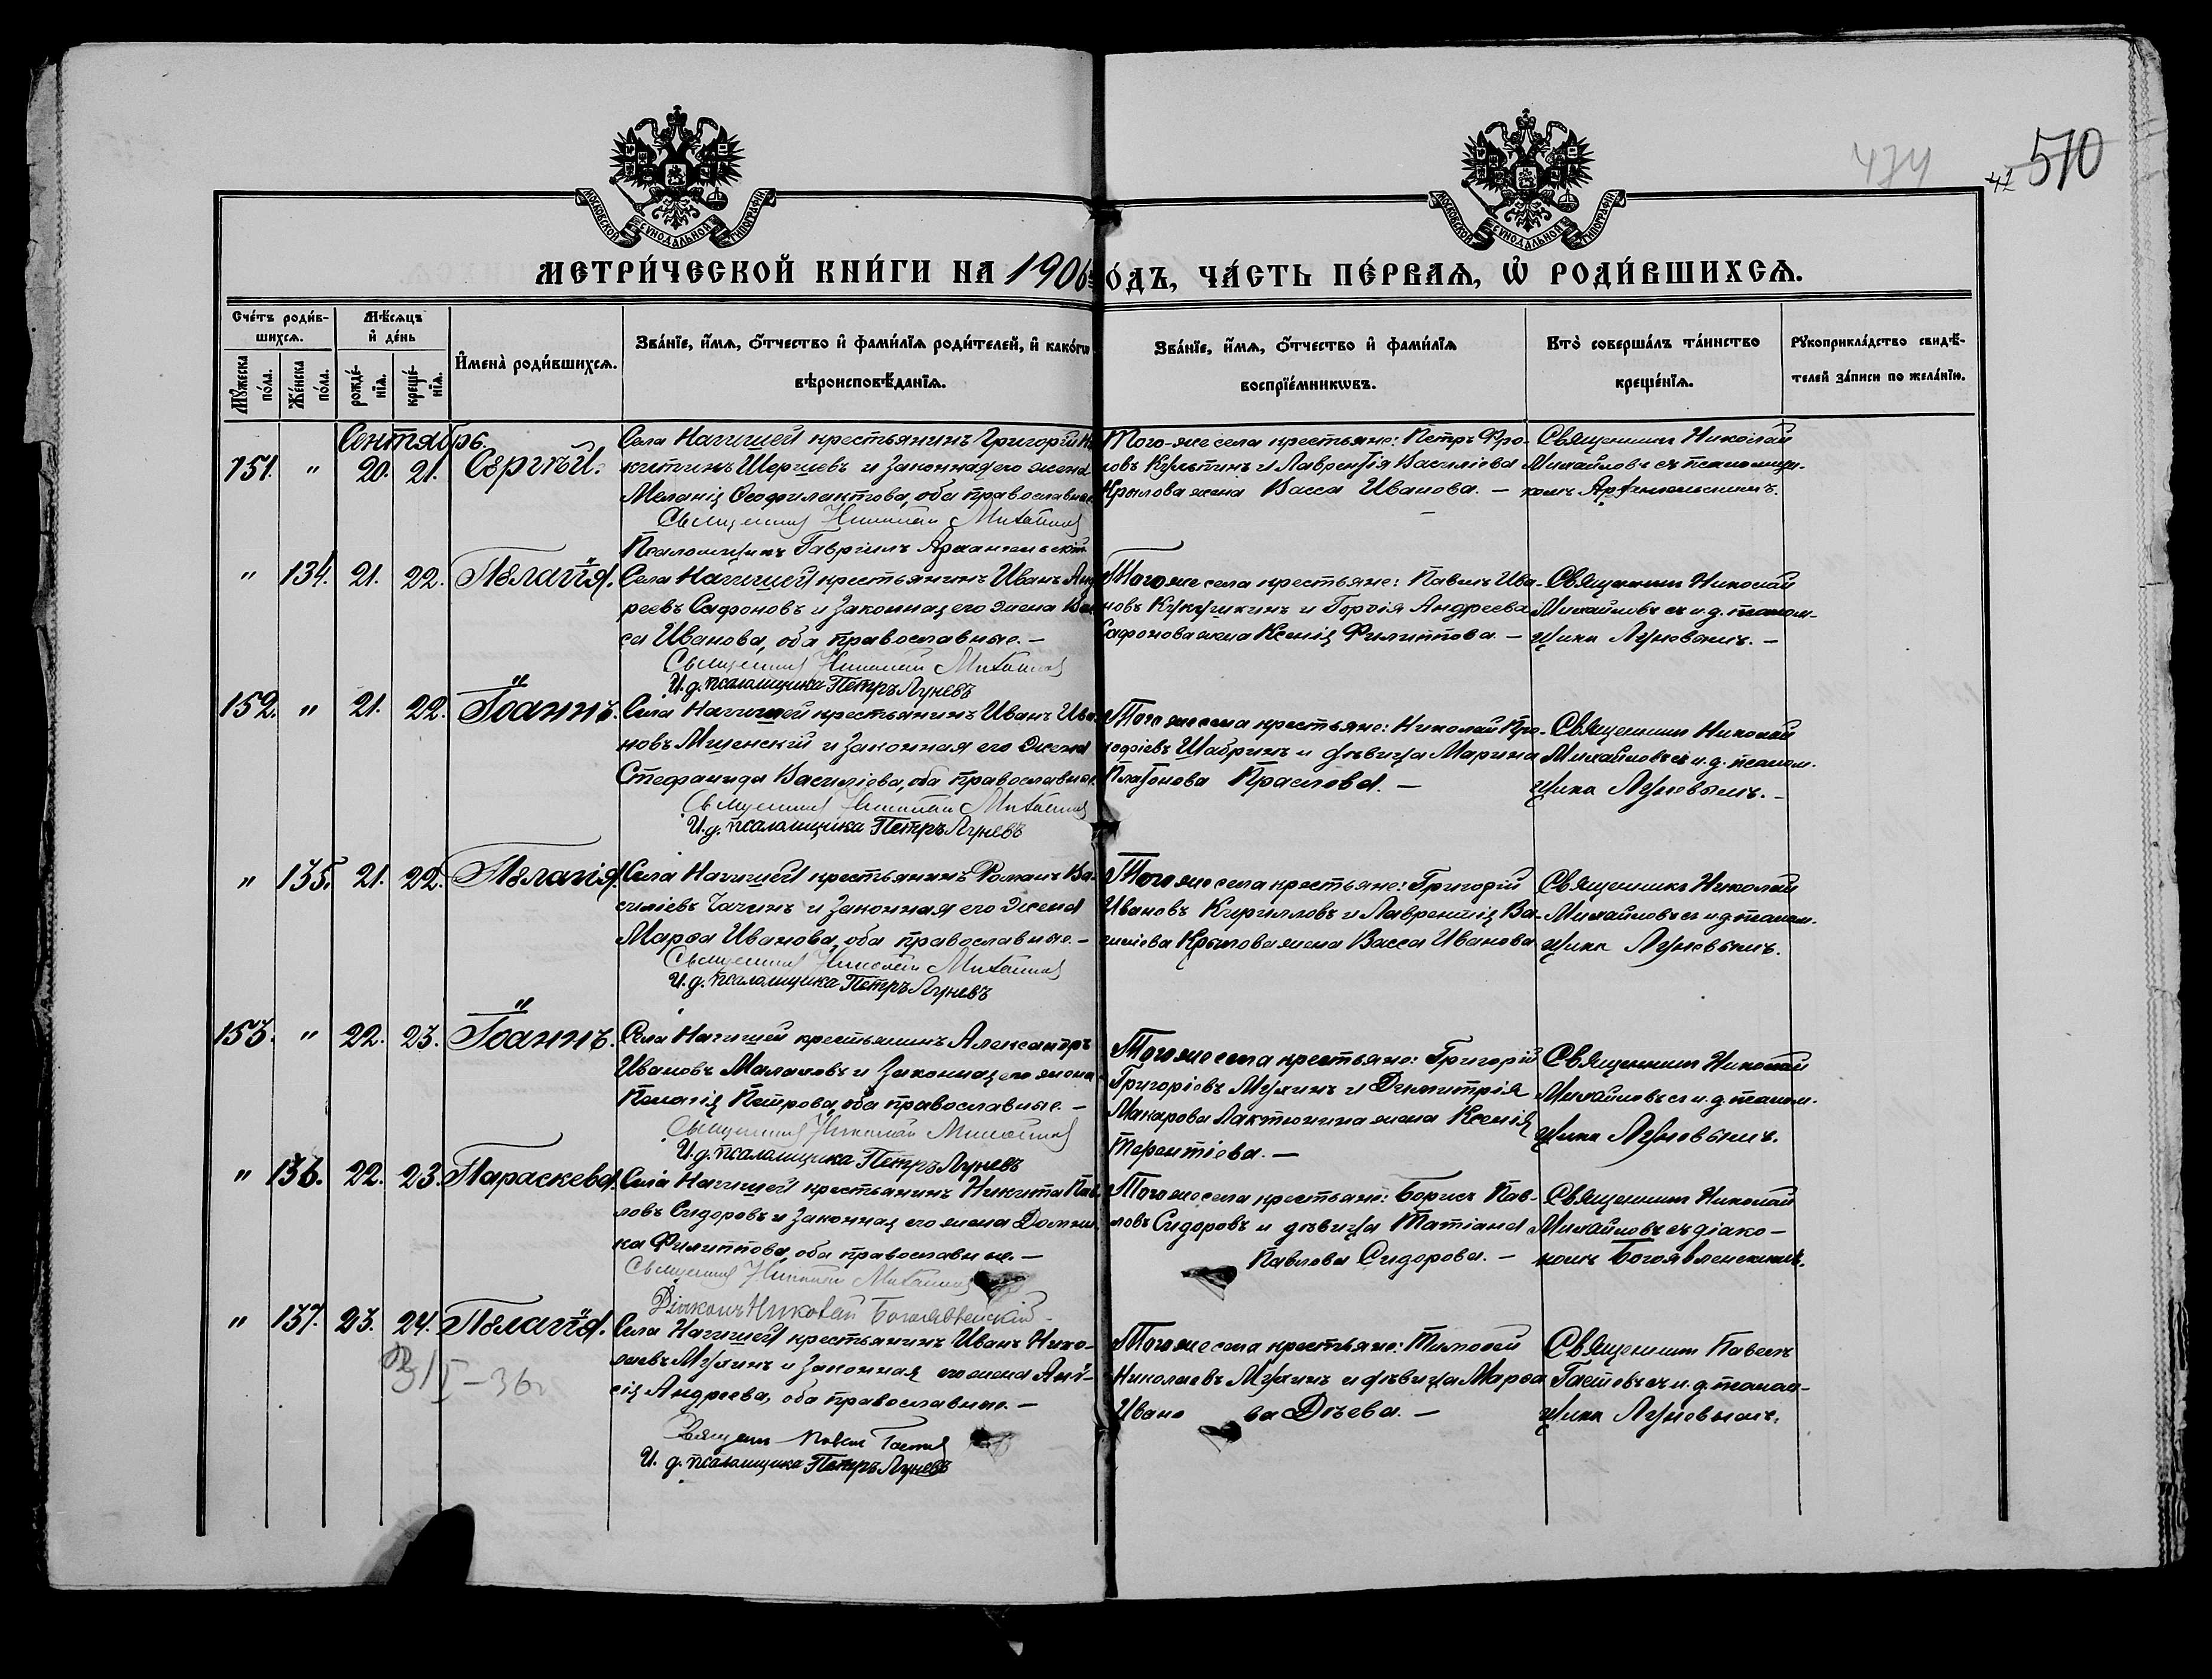 474
41 510
МОСКОВСКОЙ СУНОДАЛЬНОЙ ТИПОГРАФІИ
МОСКОВСКОЙ СУНОДАЛЬНОЙ ТИПОГРАФІИ
МЕТРИ́ЧЕСКОЙ КНИ́ГИ НА 1906 го́дъ, ЧА́СТЬ ПЕ́РВАЯ, Ѡ҆ РОДИ́ВШИХСѦ.
Сче́тъ роди́в-
шихсѧ.
Мꙋжеска по́ла.
Же́нска по́ла.
Мѣ́сѧцъ и҆ де́нь
рожде́-нїѧ.
креще́-нїѧ.
И҆мена̀ роди́вшихсѧ.
Зва́нїе, и҆́мѧ, ѻ҆́тчество и҆ фами́лїѧ роди́телей, и҆ како́гѡ
вѣроисповѣ́данїѧ.
Зва́нїе, и҆́мѧ, ѻ҆́тчество и҆ фами́лїѧ
воспрїе́мникѡвъ.
Кто̀ соверша́лъ та́инство
креще́нїѧ.
Рꙋкоприкла́дство свидѣ́-
телей за́писи по жела́нїю.
Сентябрь.
151. " 20. 21. Сергѣй.
Села Нагишей крестьянинъ Григорій Ни-
китинъ Шершевъ и законная его жена
Меланія Ѳеофилактова, оба православные.
Священникъ Николай Михайловъ
Псаломщикъ Гавріилъ Архангельскій
Того-же села крестьяне: Петръ Фро-
ловъ Культинъ и Лаврентія Василіева
Крылова жена Васса Иванова. —
Священникъ Николай
Михайловъ съ псаломщи-
комъ Архангельскимъ.
" 134. 21. 22. Пелагія.
Села Нагишей крестьянинъ Иванъ Анд-
реевъ Сафоновъ и законная его жена Вас-
са Иванова, оба православные. —
Священникъ Николай Михайловъ
И. д. псаломщика Петръ Луневъ
Того же села крестьяне: Павелъ Ива-
новъ Кукушкинъ и Гордія Андреева
Сафонова жена Ксенія Филиппова. —
Священникъ Николай
Михайловъ съ и. д. псалом-
щика Луневымъ. —
152. " 21. 22. Іоаннъ.
Села Нагишей крестьянинъ Иванъ Ива-
новъ Мшенскій и законная его жена
Стефанида Василіева, оба православные.
Священникъ Николай Михайловъ
И. д. псаломщика Петръ Луневъ
Того же села крестьяне: Николай Про-
кофіевъ Шабринъ и дѣвица Марина
Платонова Краслова. —
Священникъ Николай
Михайловъ съ и. д. псалом-
щика Луневымъ. —
" 135. 21. 22. Пелагія.
Села Нагишей крестьянинъ Романъ Ва-
силіевъ Чачинъ и законная его жена
Марѳа Иванова, оба православные. —
Священникъ Николай Михайловъ
И. д. псаломщика Петръ Луневъ
Того же села крестьяне: Григорій
Ивановъ Кирилловъ и Лаврентія Ва-
силіева Крылова жена Васса Иванова
Священникъ Николай
Михайловъ съ и. д. псалом-
щика Луневымъ.
153. " 22. 23. Іоаннъ.
Села Нагишей крестьянинъ Александръ
Ивановъ Малаховъ и законная его жена
Пелагія Петрова, оба православные. —
Священникъ Николай Михайловъ
И. д. псаломщика Петръ Луневъ
Того же села крестьяне: Григорій
Григоріевъ Мулинъ и Димитрія
Макарова Лактюнина жена Ксенія
Терентіева. —
Священникъ Николай
Михайловъ съ и. д. псалом-
щика Луневымъ.
" 136. 22. 23. Параскева.
Села Нагишей крестьянинъ Никита Пав-
ловъ Сидоровъ и законная его жена Домни-
ка Филиппова, оба православные. —
Священникъ Николай Михайловъ
Діаконъ Николай Богоявленскій
Того же села крестьяне: Борисъ Пав-
ловъ Сидоровъ и дѣвица Татіана
Павлова Сидорова. —
Священникъ Николай
Михайловъ съ діако-
номъ Богоявленскимъ.
" 137. 23. 24. Пелагія.
31/I – 36г
Села Нагишей крестьянинъ Иванъ Нико-
лаевъ Мулинъ и законная его жена Ани-
сія Андреева, оба православные. —
Священ. Павелъ Гостевъ
И. д. псаломщика Петръ Луневъ
Того же села крестьяне: Тимоѳей
Николаевъ Мулинъ и дѣвица Марѳа
Иванова Дѣева. —
Священникъ Павелъ
Гостевъ съ и. д. псалом-
щика Луневымъ.